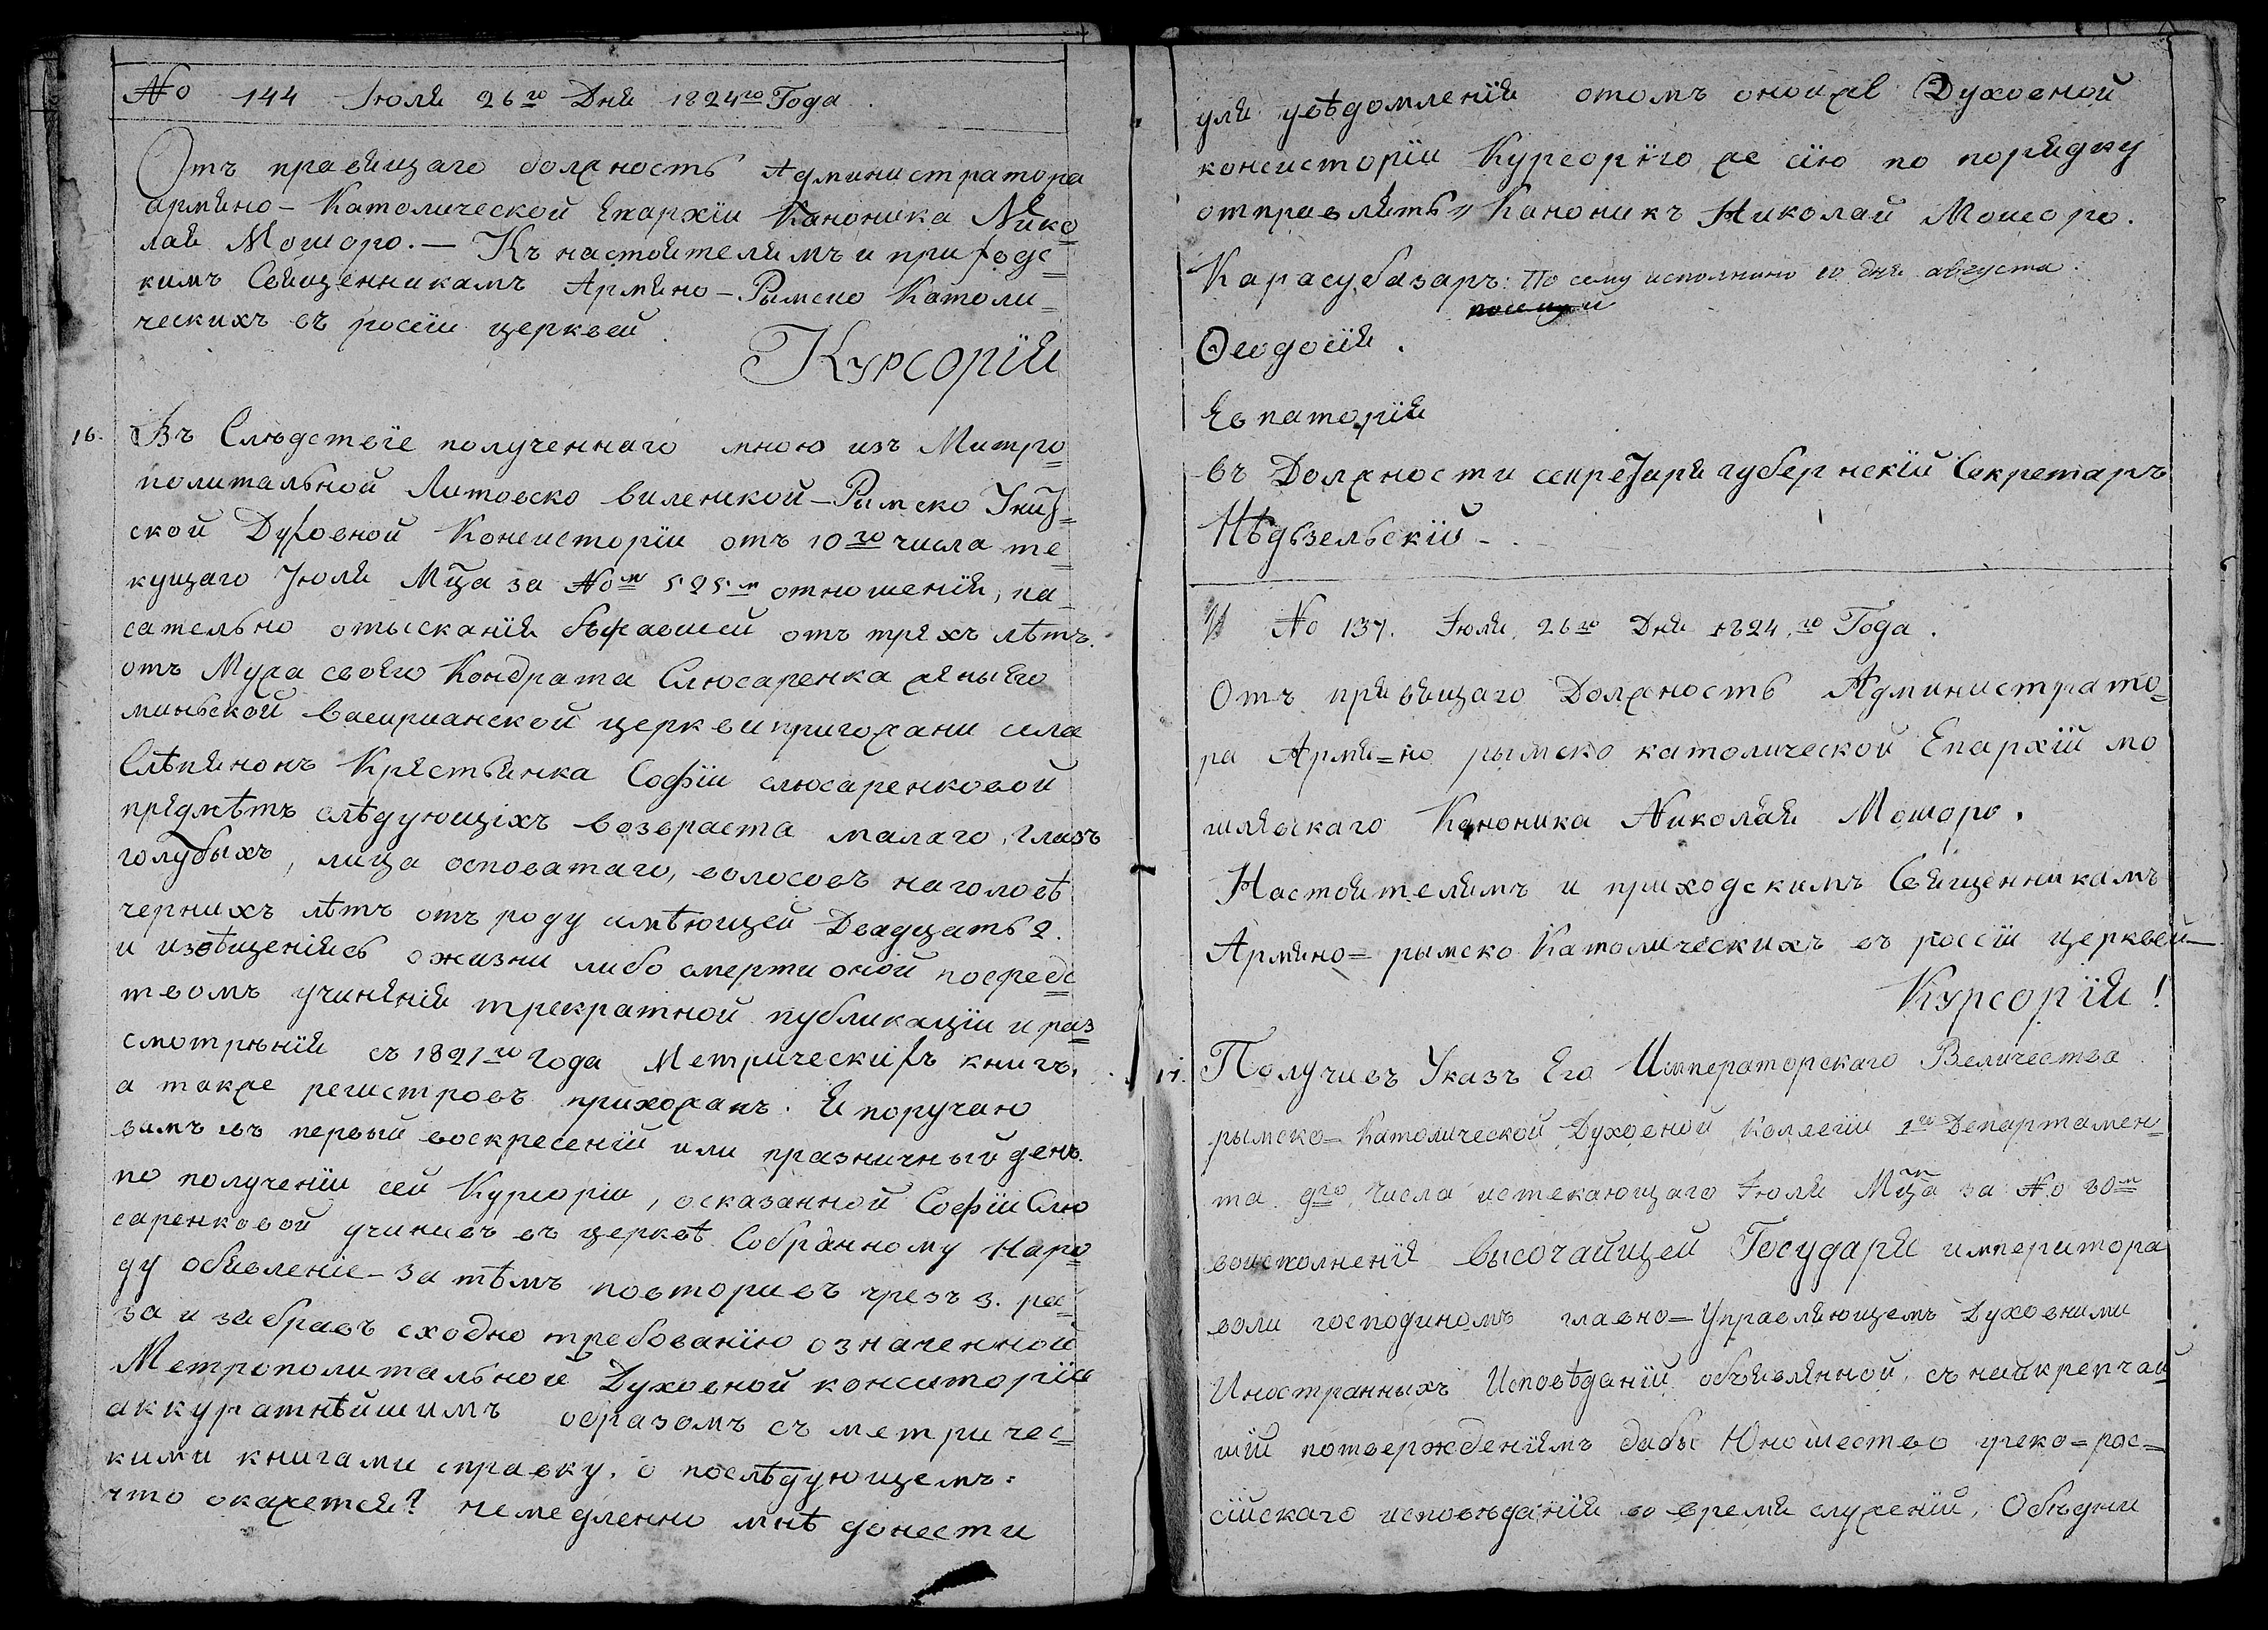 No 144 Іюля 26го Дня 1824го Года.
Отъ правящаго должность Администратора
армяно-Католической Епархіи Каноника Нико=
лая Мошоро. — Къ настоятелямъ и приходс=
кимъ Священникамъ Армяно-Рымско Католи=
ческихъ въ росіи церквей.
Курсорія
16. Въ Слѣдствіе полученнаго мною изъ Митро=
политальной Литовско виленской-Рымско Унит=
ской Духовной Консисторіи отъ 10го числа те=
кущаго Іюля Мца за Nом 525м отношенія, ка=
сательно отысканія бѣжавшей отъ трехъ лѣтъ.
отъ Мужа своего Кондрата Слюсаренка жены его
миньской церкви прихожани села
Слѣпянокъ Крястьянка Софіи слюсаренковой
прямѣтъ слѣдующіхъ возвраста малаго, глазъ
голубыхъ, лица осповатаго, волосовъ наголовѣ
чернихъ лѣтъ отъ роду имѣющей Двадцать 2.
и извѣщеніясъ ожизни либо смерти оной посредс=
твомъ учиненія трекратной публикаціи и раз=
смотрѣнія съ 1821го года Метрическихъ книгъ,
а также регистровъ прихожанъ. Я поручаю
вамъ въ первый воскресеній или празничный день.
по полученіи сей Курсоріи, осказанной Софіи Слю
саренковой учинивъ въ церквѣ Собранному Наро=
ду обявленіе-затѣмъ повторивъ чрезъ 3. ра=
за и забравъ сходно требованію означенной
Метрополитальной Духовной конситоріи
аккуратнѣйшимъ образомъ съ метричес=
кими книгами справку, о послѣдующемъ.
что окажется? немедленно мнѣ донести
уля увѣдомленія отомъ онойже Духовной
консисторіи Курсорію же сію по порядку
отправлять, Каноникъ Николай Мошоро.
Карасубазаръ: По сему исполнино 10 дня августа.
Ѳеодосія.
Евпаторія
въ Должности секретаря губернскій Секретаръ
Нѣдзвельскій-.
No 137. Іюля, 26го Дня 1824,го Года.
Отъ правящаго Должность Администрато=
ра Армя=но рымско католической Епархіи мо
гилявскаго Каноника Николая Мошоро.
Настоятелямъ и приходскимъ Священникамъ
Армяно=рымско Католическихъ въ россіи церквей-
Курсорія!
17. Получивъ Указъ Его Императорскаго Величества
рымско=Католической Духовной Коллегіи 1го Департамен=
та 9го, числа истекающаго Іюля Мца за No 30м
воисполненія высочайщей Государя императора
воли господиномъ главно=Управляющемъ Духовними
Иностранныхъ Исповѣданій объявлянной, съ найкрепчай
шій потвержденіямъ дабы Юношество греко=рос=
сійскаго исповѣданія во время служеній, Обѣдни